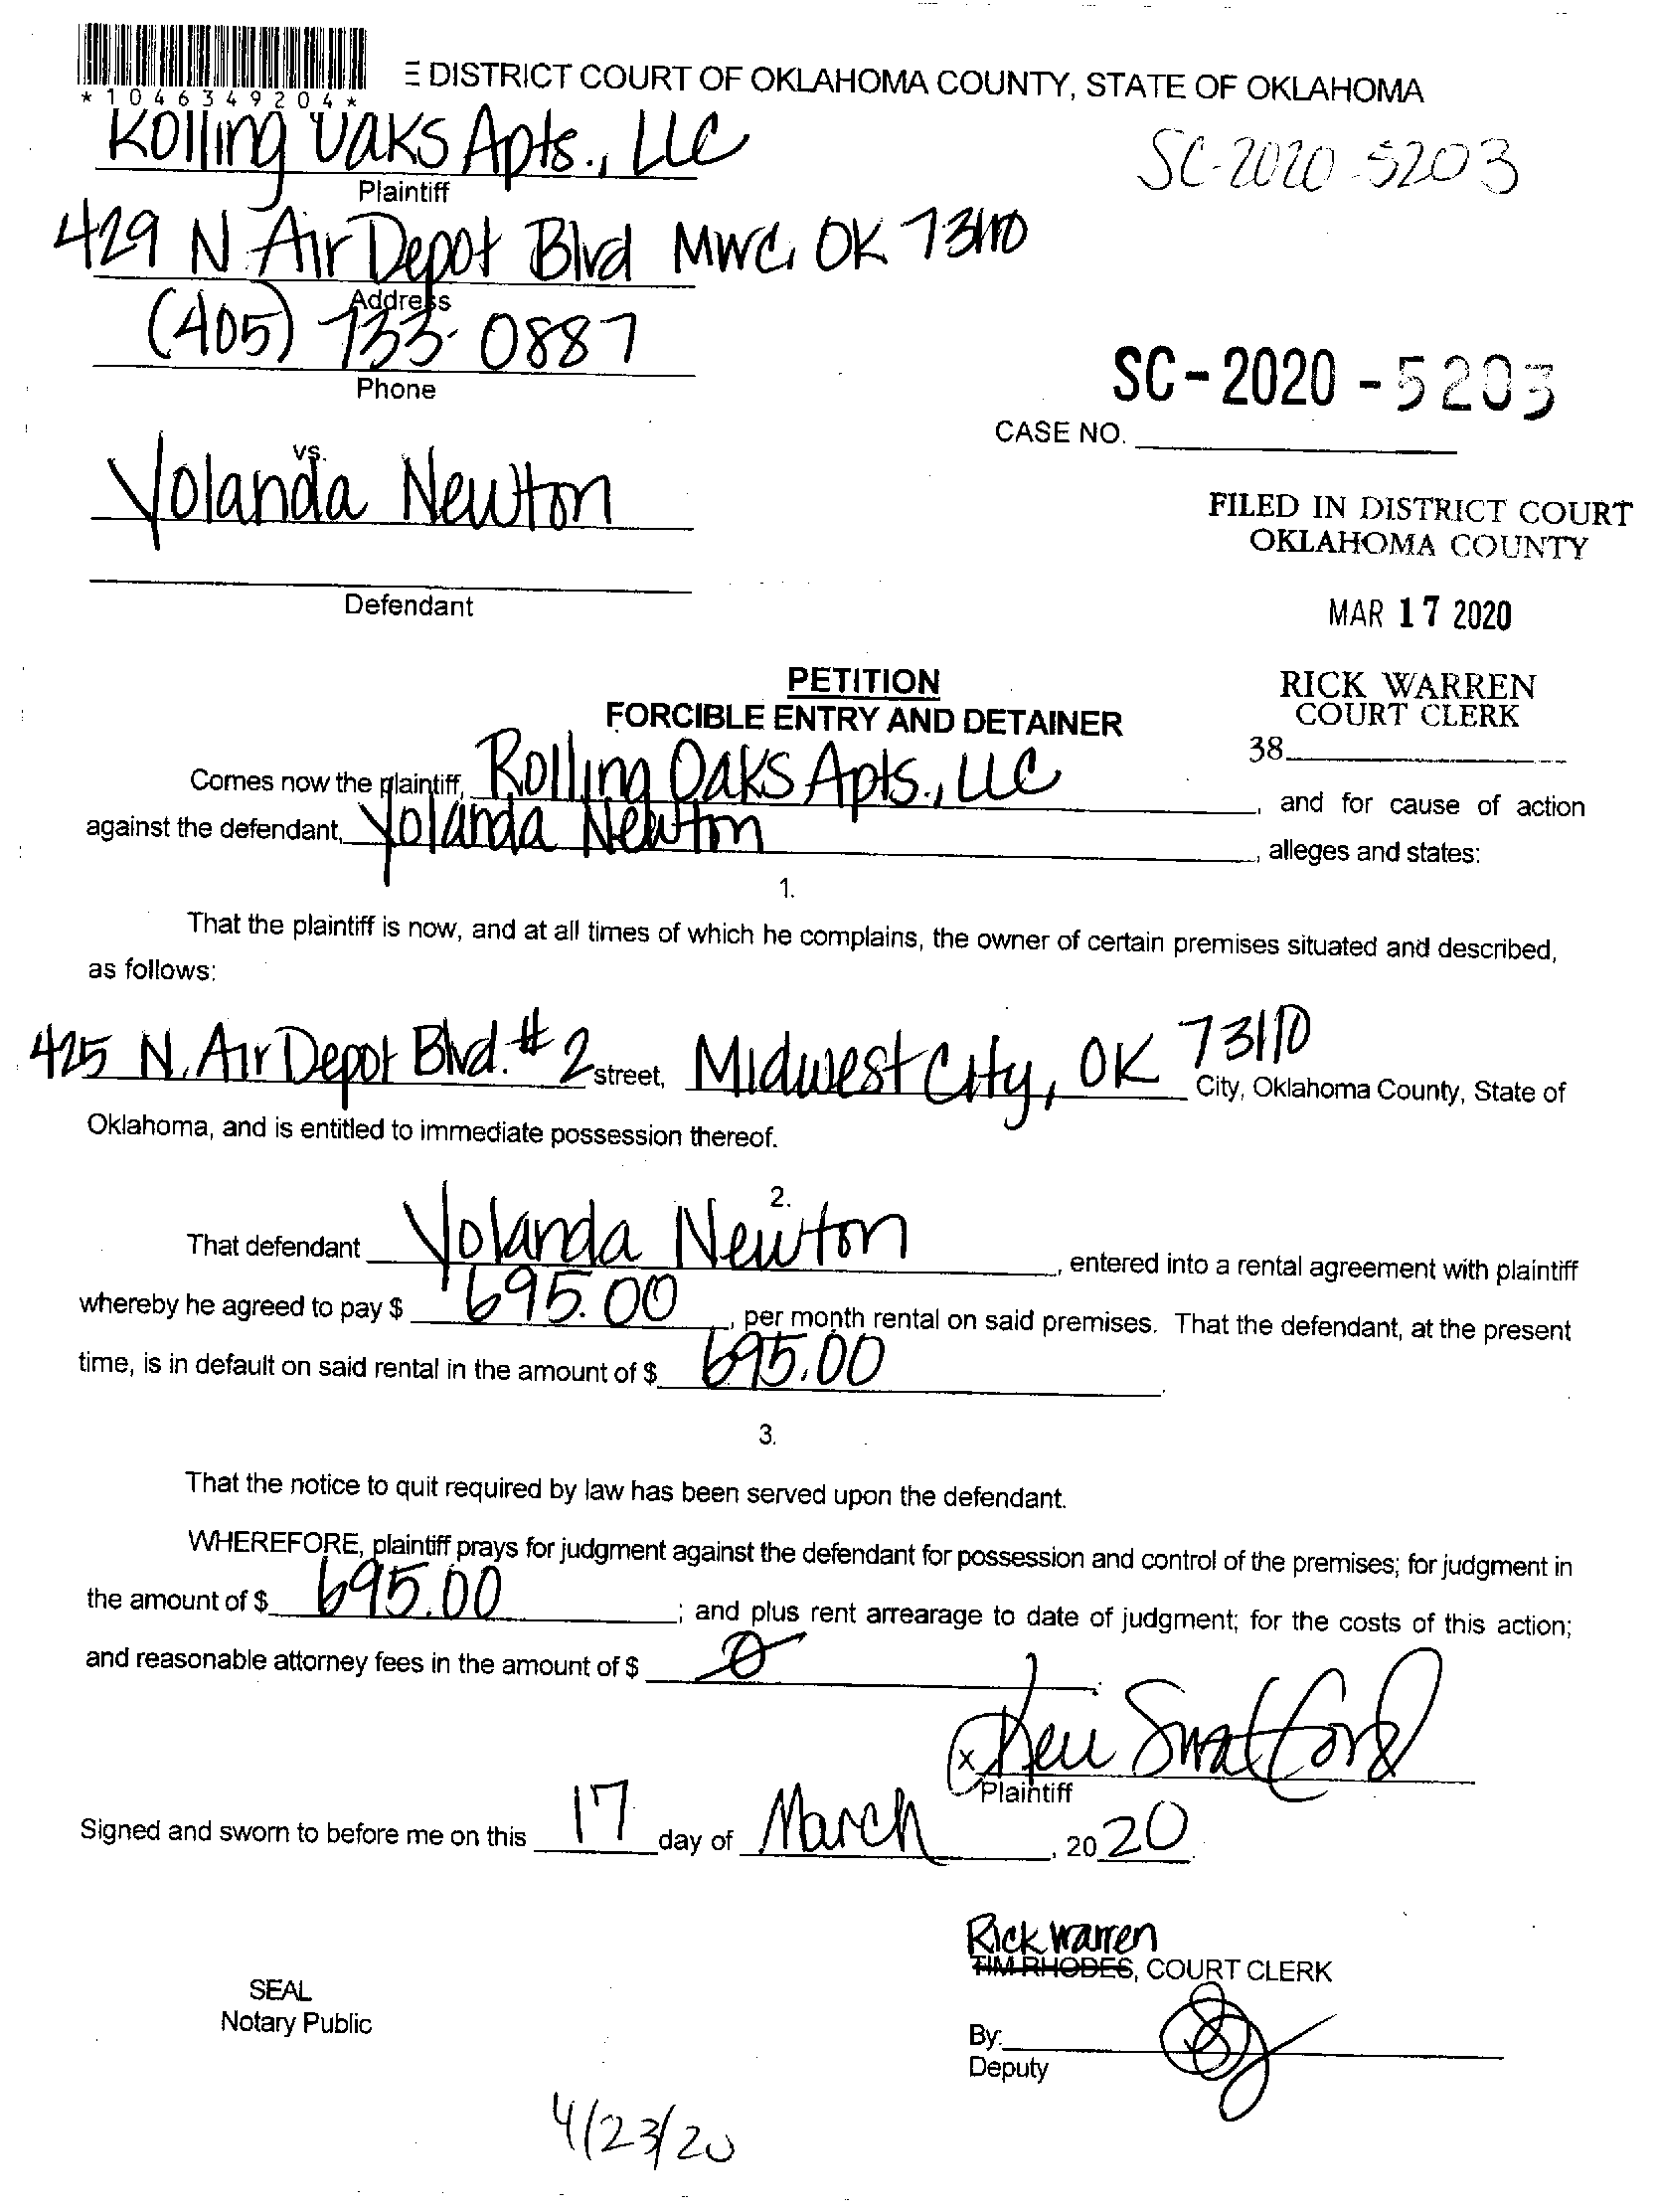 *1046349204*
E DISTRICT COURT OF OKLAHOMA COUNTY, STATE OF OKLAHOMA
Rolling Oaks Apts., LLC
SC-2020-5203
Plaintiff
429 N Air Depot Blvd MWC, OK 73110
Address
(405) 733-0887
Phone
SC-2020-5203
CASE NO.
vs.
Yolanda Newton
FILED IN DISTRICT COURT
OKLAHOMA COUNTY
Defendant
MAR 17 2020
PETITION
FORCIBLE ENTRY AND DETAINER
RICK WARREN
COURT CLERK
38
Comes now the plaintiff, Rolling Oaks Apts., LLC, and for cause of action
against the defendant, Yolanda Newton, alleges and states:
1.
That the plaintiff is now, and at all times of which he complains, the owner of certain premises situated and described,
as follows:
425 N. Air Depot Blvd. #2 street, Midwest City, OK 73110 City, Oklahoma County, State of
Oklahoma, and is entitled to immediate possession thereof.
2.
That defendant Yolanda Newton, entered into a rental agreement with plaintiff
whereby he agreed to pay $ 695.00, per month rental on said premises. That the defendant, at the present
time, is in default on said rental in the amount of $ 695.00.
3.
That the notice to quit required by law has been served upon the defendant.
WHEREFORE, plaintiff prays for judgment against the defendant for possession and control of the premises; for judgment in
the amount of $ 695.00; and plus rent arrearage to date of judgment; for the costs of this action;
and reasonable attorney fees in the amount of $ 0.
x
Plaintiff
Signed and sworn to before me on this 17 day of March, 2020.
Rick Warren
TIM RHODES, COURT CLERK
SEAL
Notary Public
By:
Deputy
4/23/20